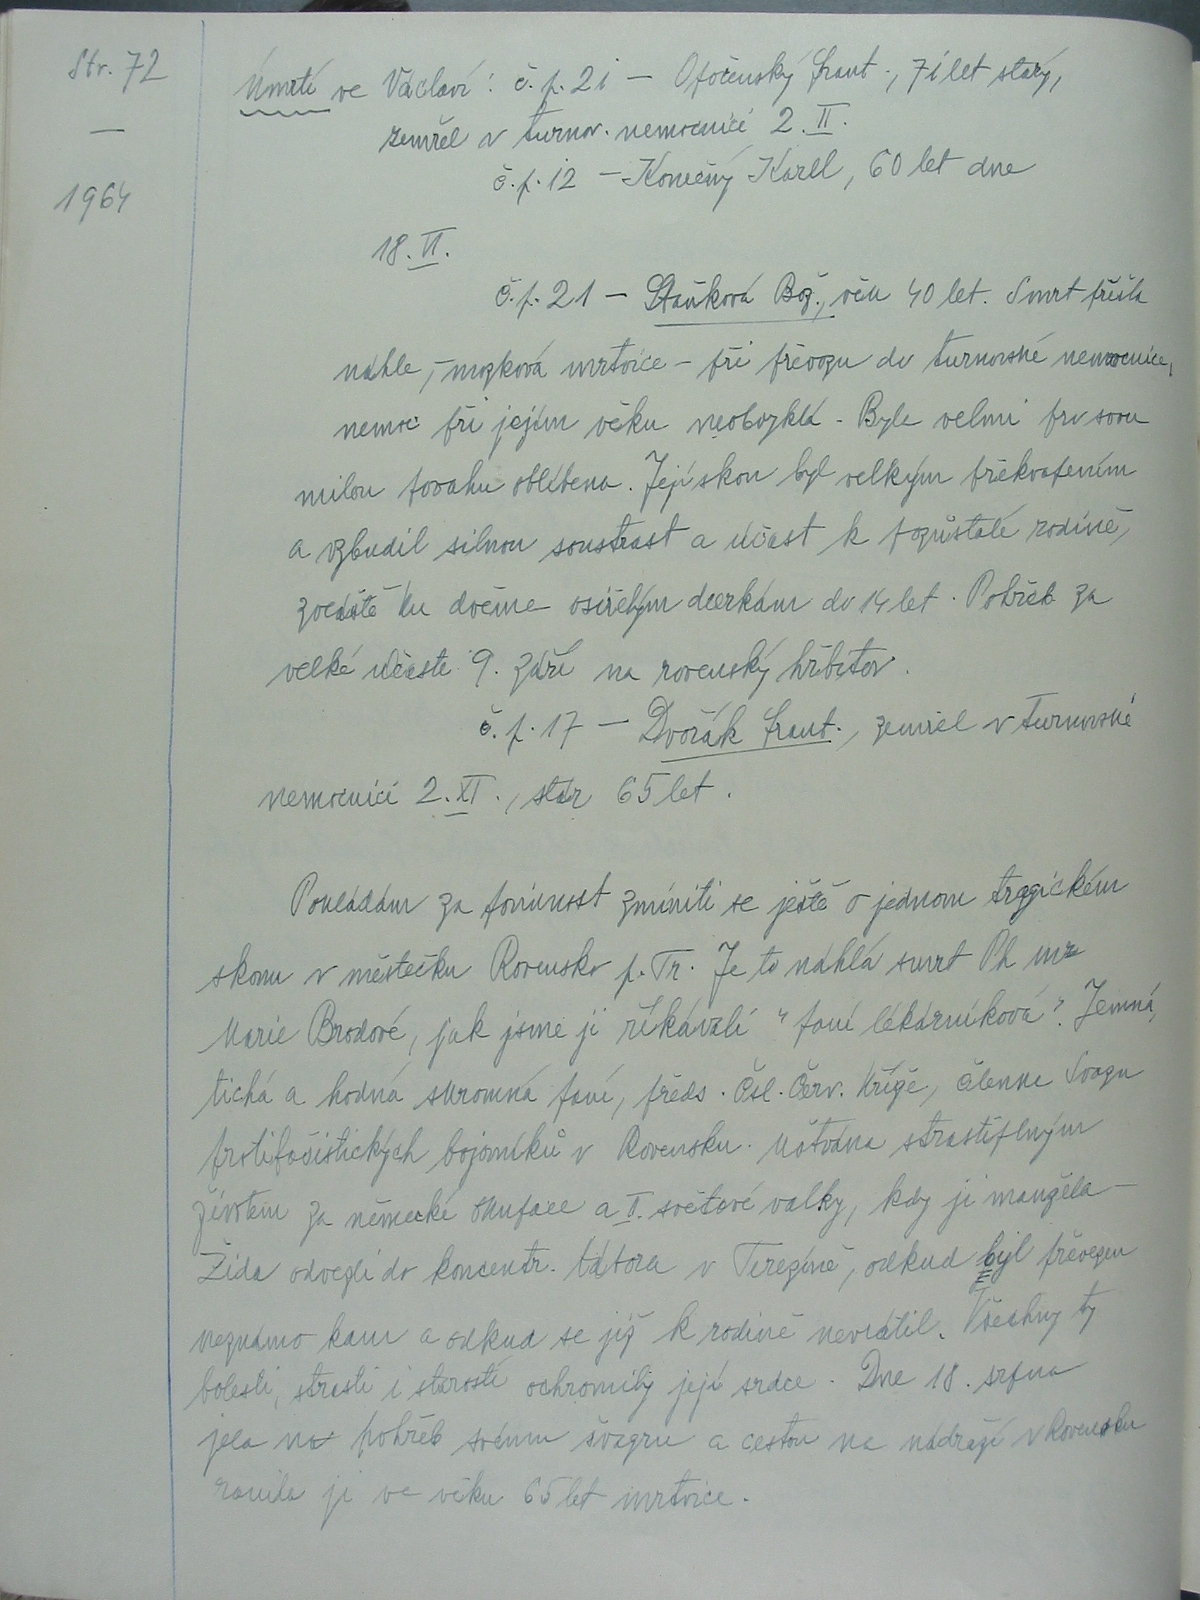 Str. 72
—
1964
Úmrtí ve Václaví: č. p. 21 — Opočenský Frant., 71 let starý,
zemřel v turnov. nemocnici 2. II.
č. p. 12 — Konečný Karel, 60 let dne
18. VI.
č. p. 21 — Staňková Bož., věk 40 let. Smrt přišla
náhle, – mozková mrtvice – při převozu do turnovské nemocnice,
nemoc při jejím věku neobvyklá. Byla velmi pro svou
milou povahu oblíbena. Její skon byl velkým překvapením
a vzbudil silnou soustrast a účast k pozůstalé rodině,
zvláště ku dvěma osiřelým dcerkám do 14 let. Pohřeb za
velké účasti 9. září na rovenský hřbitov.
č. p. 17 — Dvořák Frant., zemřel v turnovské
nemocnici 2. XI., stár 65 let.
Pokládám za povinnost zmíniti se ještě o jednom tragickém
skonu v městečku Rovensko p. Tr. Je to náhlá smrt Ph mr
Marie Brodové, jak jsme jí říkávali "paní lékárníková". Jemná,
tichá a hodná skromná paní, předs. Čsl. Červ. kříže, členka Svazu
protifašistických bojovníků v Rovensku. Uštvána strastiplným
životem za německé okupace a II. světové války, kdy jí manžela –
Žida odvezli do koncentr. tábora v Terezíně, odkud byl převezen
neznámo kam a odkud se již k rodině nevrátil. Všechny ty
bolesti, strasti i starosti ochromily její srdce. Dne 18. srpna
jela na pohřeb svému švagru a cestou na nádraží v Rovensku
ranila ji ve věku 65 let mrtvice.